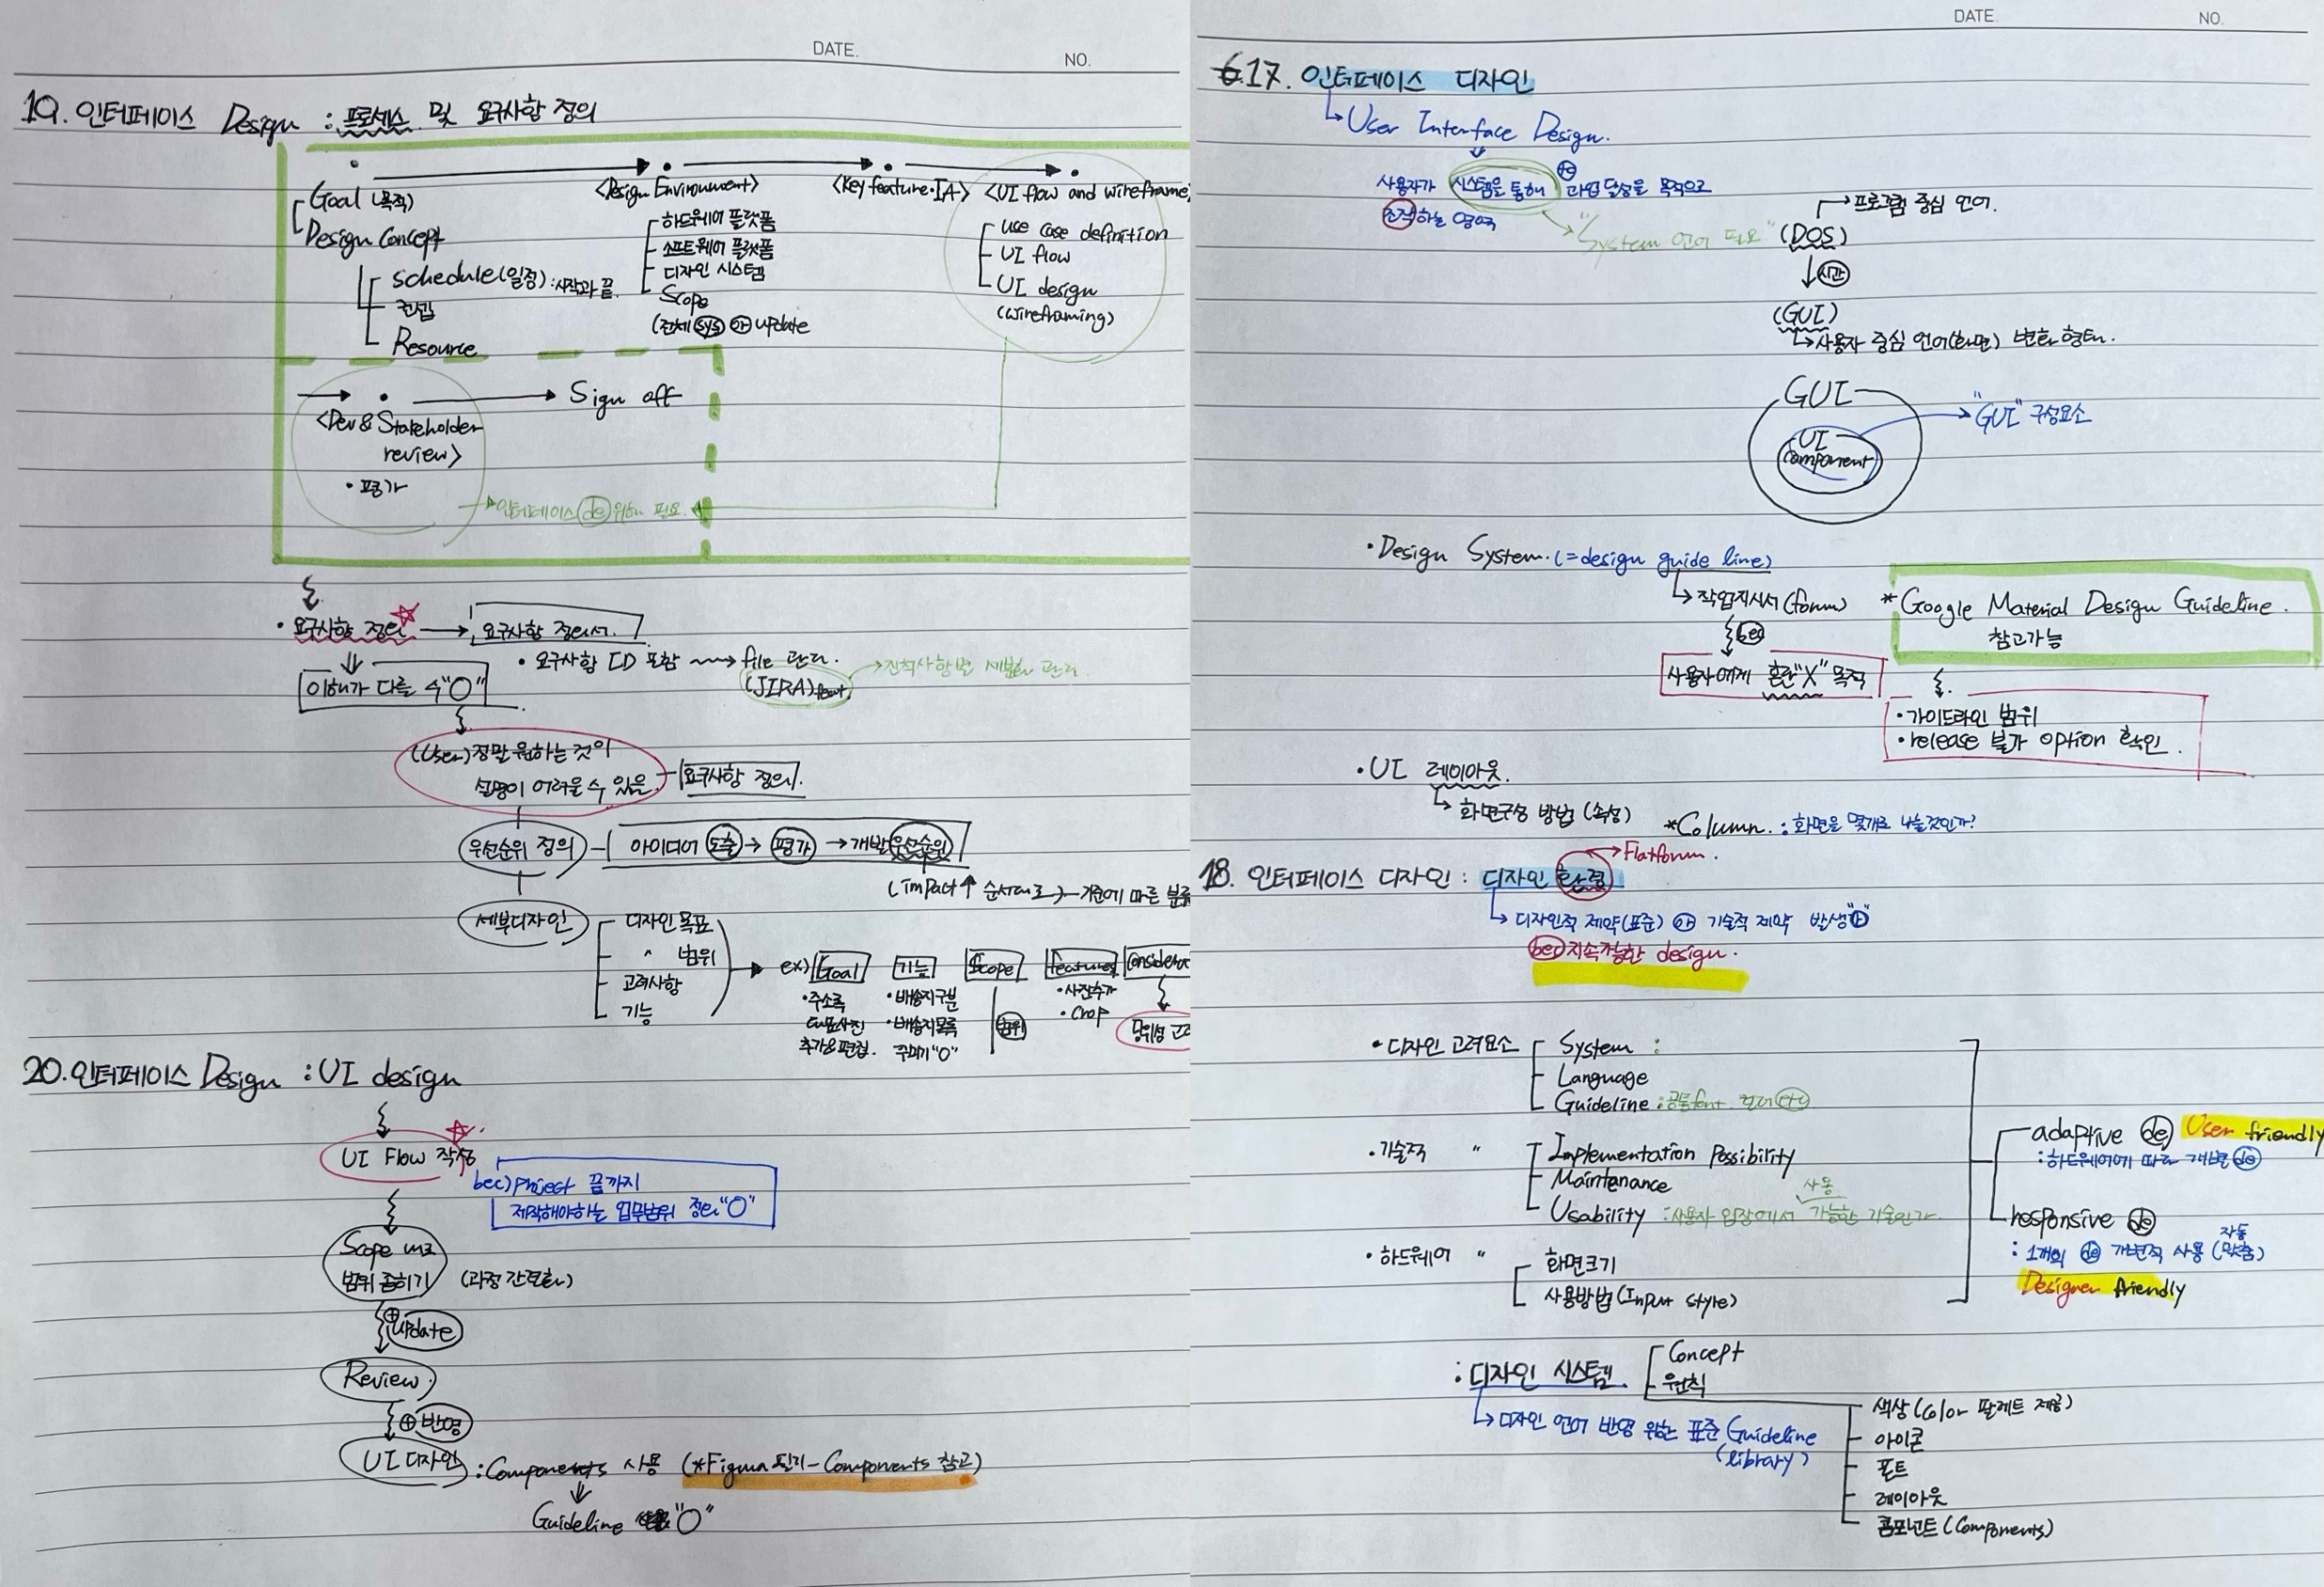 DATE.
NO.
19. 인터페이스 Design : 프로세스 및 요구사항 정의
Goal (목적)
Design Concept
schedule(일정) : 시작과 끝.
컨셉
Resource
<Design Environment>
하드웨어 플랫폼
소프트웨어 플랫폼
디자인 시스템
Scope
(전체 sys or update
<Key feature·IA>
<UI flow and wireframe
use case definition
UI flow
UI design
(wireframing)
<Dev & Stakeholder
review>
• 평가
Sign off
인터페이스 de 위해 필요.
• 요구사항 정의 → 요구사항 정의서.
• 요구사항 ID 포함 → file 관리.
(JIRA)
진척사항별 세분화 관리
이해가 다를 수 "O"
(User) 정말 원하는 것이
설명이 어려울 수 있음
요구사항 정의.
우선순위 정의
아이디어 도출 → 평가 → 개발 우선순위
(impact↑ 순서대로) 기준에 따른 분류
세부디자인
디자인 목표
" 범위
고려사항
기능
ex) Goal
기능
Scope
features
considerat
• 주소록
대표사진
추가&편집.
• 배송지구분
• 배송지목록
주미기 "O"
범위
• 사진추가
• Crop
당위성 고려
20. 인터페이스 Design : UI design
UI Flow 작성
bec) Project 끝까지
제작해야하는 업무범위 정의 "O"
Scope
범위 좁히기 (과정 간편화)
+ update
Review
+ 반영
UI 디자인 : Components 사용 (*Figma 필기 - Components 참고)
Guideline "O"
DATE.
NO.
17. 인터페이스 디자인
User Interface Design.
사용자가 시스템을 통해 과업 달성을 목적으로
조작하는 영역
"System 언어 필요"
(DOS)
프로그램 중심 언어.
시간
(GUI)
사용자 중심 언어(화면) 변화 형태.
GUI
UI
component
"GUI" 구성요소
• Design System. (= design guide line)
작업지시서 (form)
bec
사용자에게 혼란 "X" 목적
* Google Material Design Guideline.
참고가능
• 가이드라인 범위
• release 불가 option 확인.
• UI 레이아웃.
화면구성 방법 (속성)
*Column. : 화면을 몇개로 나눌것인가?
18. 인터페이스 디자인 : 디자인 환경
Flatform.
디자인적 제약(표준) or 기술적 제약 발생
bec 지속가능한 design.
• 디자인 고려요소
System :
Language
Guideline : 공통font. 컬러 etc
• 기술적 "
Implementation Possibility
Maintenance
사용
Usability : 사용자 입장에서 가능한 기술인가
• 하드웨어 "
화면크기
사용방법 (Input style)
adaptive de User friendly
: 하드웨어에 따라 개별 de
responsive de
자동
: 1개의 de 개별적 사용 (맞춤)
Designer friendly
: 디자인 시스템
Concept
원칙
디자인 언어 반영 위한 표준 Guideline
(library)
색상 (Color 팔레트 제공)
아이콘
폰트
레이아웃
콤포넌트 (Components)